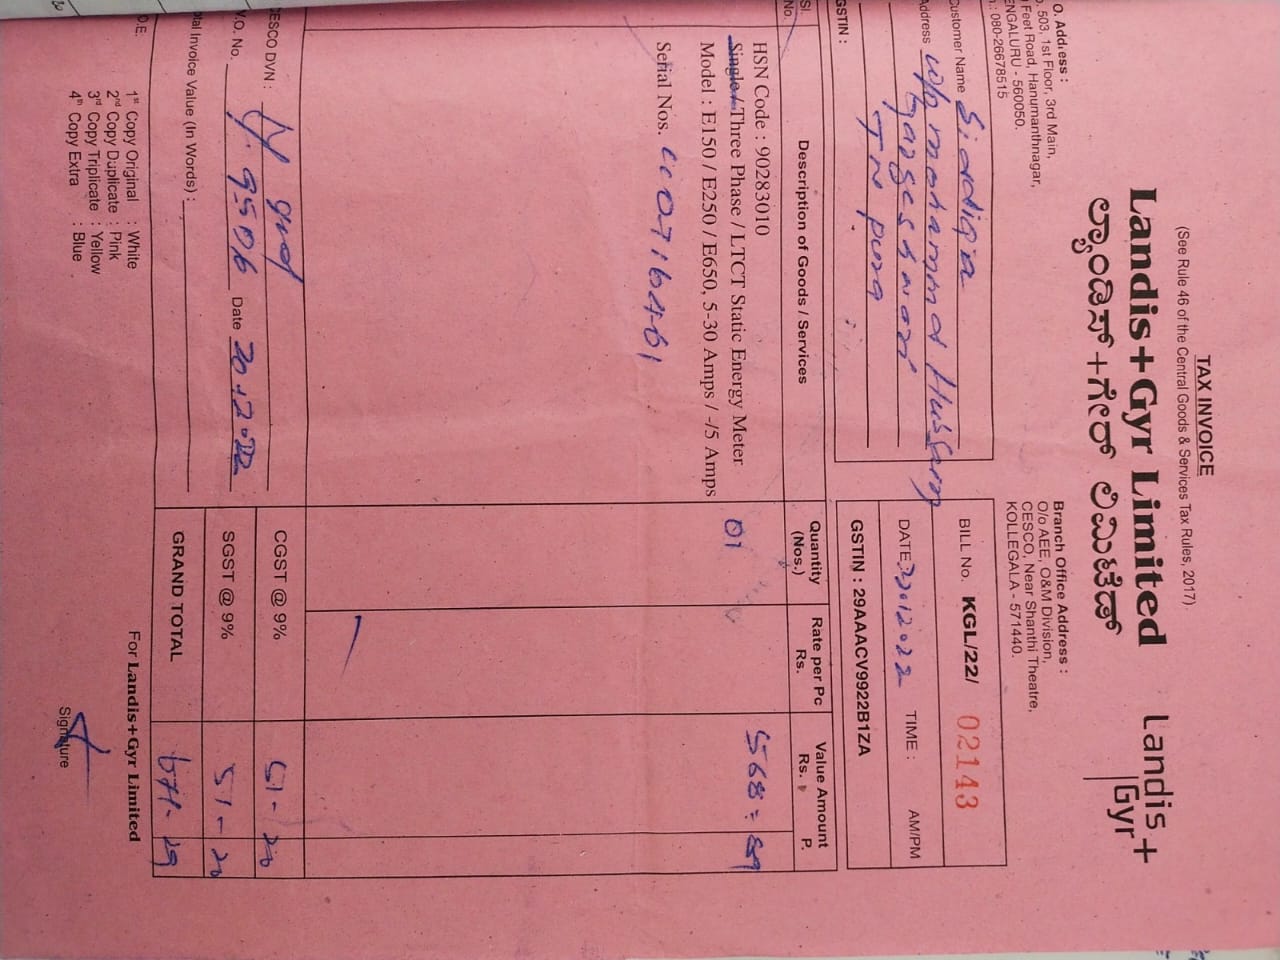 TAX INVOICE
(See Rule 46 of the Central Goods & Services Tax Rules, 2017)
Landis+Gyr Limited
Landis+
Gyr
ಲ್ಯಾಂಡಿಸ್+ಗೀರ್ ಲಿಮಿಟೆಡ್
O. Address :
503, 1st Floor, 3rd Main,
Feet Road, Hanumanthnagar,
ENGALURU - 560050.
: 080-26678515
Branch Office Address :
O/o AEE, O&M Division,
CESCO, Near Shanthi Theatre,
KOLLEGALA - 571440.
Customer Name Siddiqa
Address w/o mohammad Hussain
GSTIN :
BILL No. KGL/22/ 02143
DATE: TIME : AM/PM
GSTIN : 29AAACV9922B1ZA
Sl. No. Description of Goods / Services Quantity (Nos.) Rate per Pc Rs. Value Amount Rs. P.
HSN Code : 90283010
Single / Three Phase / LTCT Static Energy Meter 01 568=89
Model : E150 / E250 / E650, 5-30 Amps / -/5 Amps
Serial Nos.
CESCO DVN :
CGST @ 9% 51-20
W.O. No. 9506 Date 20-12-2022
SGST @ 9% 51-20
Total Invoice Value (In Words) :
GRAND TOTAL 671-29
1st Copy Original : White
2nd Copy Duplicate : Pink
3rd Copy Triplicate : Yellow
4th Copy Extra : Blue
For Landis+Gyr Limited
Signature